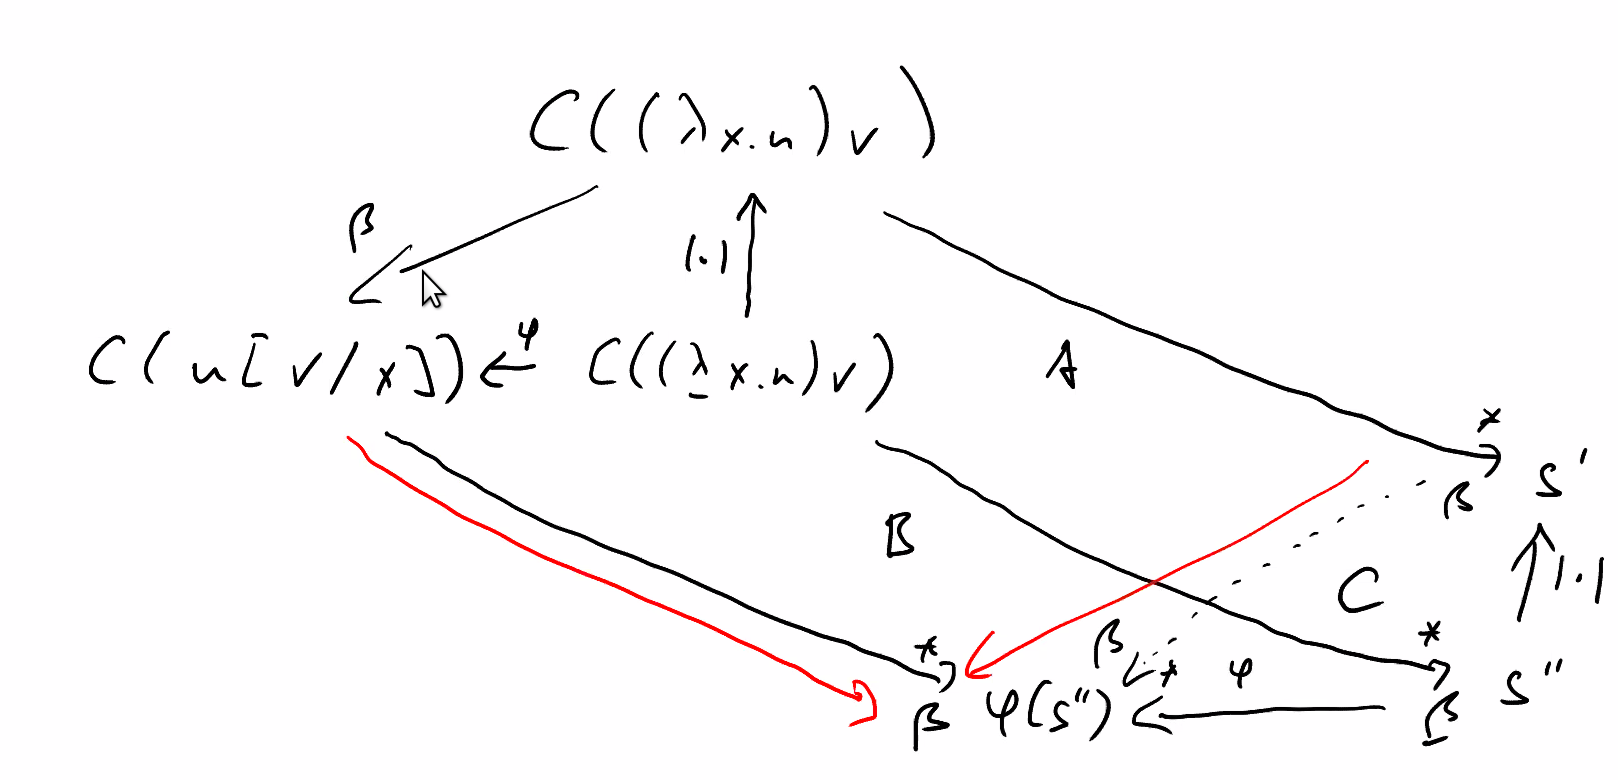 C((λx.u)v)
β
|·|
C(u[v/x]) ← φ C((λ̲x.u)v)
A
*
β
s'
B
C
|·|
β
*
*
*
φ
β
φ(s'')
β̲
s''